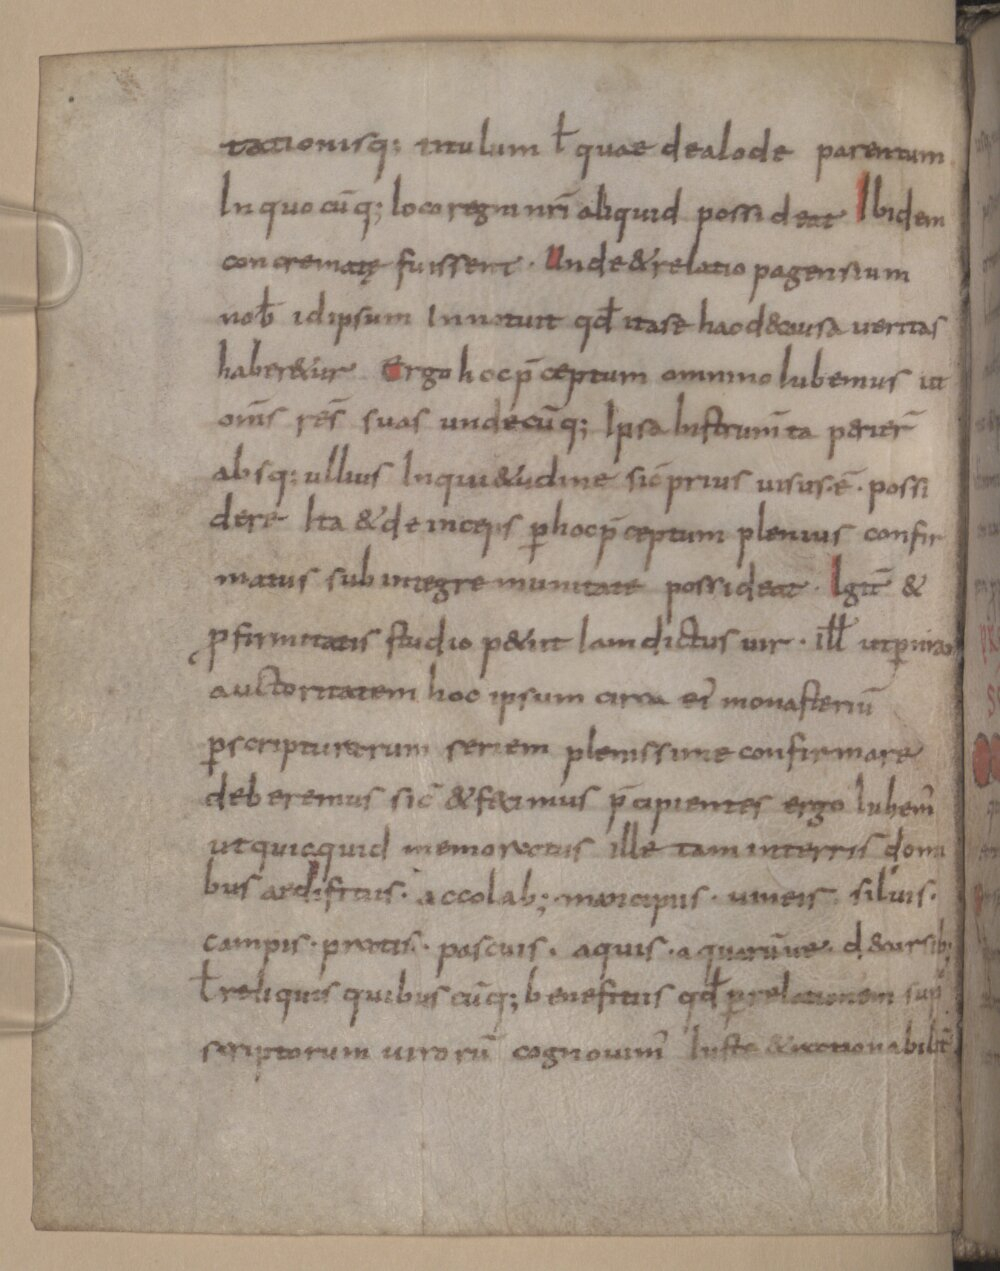 tationisq; titulum ł quae dealode parentum
In quo cūq; loco regni nr̄i aliquid possideat Ibidem
concrematę fuissent · Unde & relatio pagensium
nob̄ idipsum Innotuit qđ itase hac & causa ueritas
haber&ur Ergo hoc p̄ceptum omnino Iubemus ut
om̄s rēs suas undecūq; Ipsa Instrum̄ta p&ier̄
absq; ullius Inqui&udine sic̄ prius uisus·ē· possi
dere Ita & deinceps ꝑhoc p̄ceptum plenius confir
matus sub integre munitate possideat · Igit̄ &
ꝓfirmitatis studio p&iit Iam dictus uir · ilł ut ꝑ nr̄ā
auctoritatem hoc ipsum circa ei' monasteriū
ꝑscripturarum seriem plenissime confirmare
deberemus sic̄ & fecimus p̄cipientes ergo Iubem'
ut quicquid memoratus ille tam interris domi
bus aedificiis · accolab; · mancipiis · uineis · siluis ·
campis · pratis · pascuis · aquis · aquarūue · d&cursib;
ł reliquis quibus cūq; beneficiis qđ ꝑrelationem sup
scriptorum uirorū cognouim' Iuste & rationabilit̄